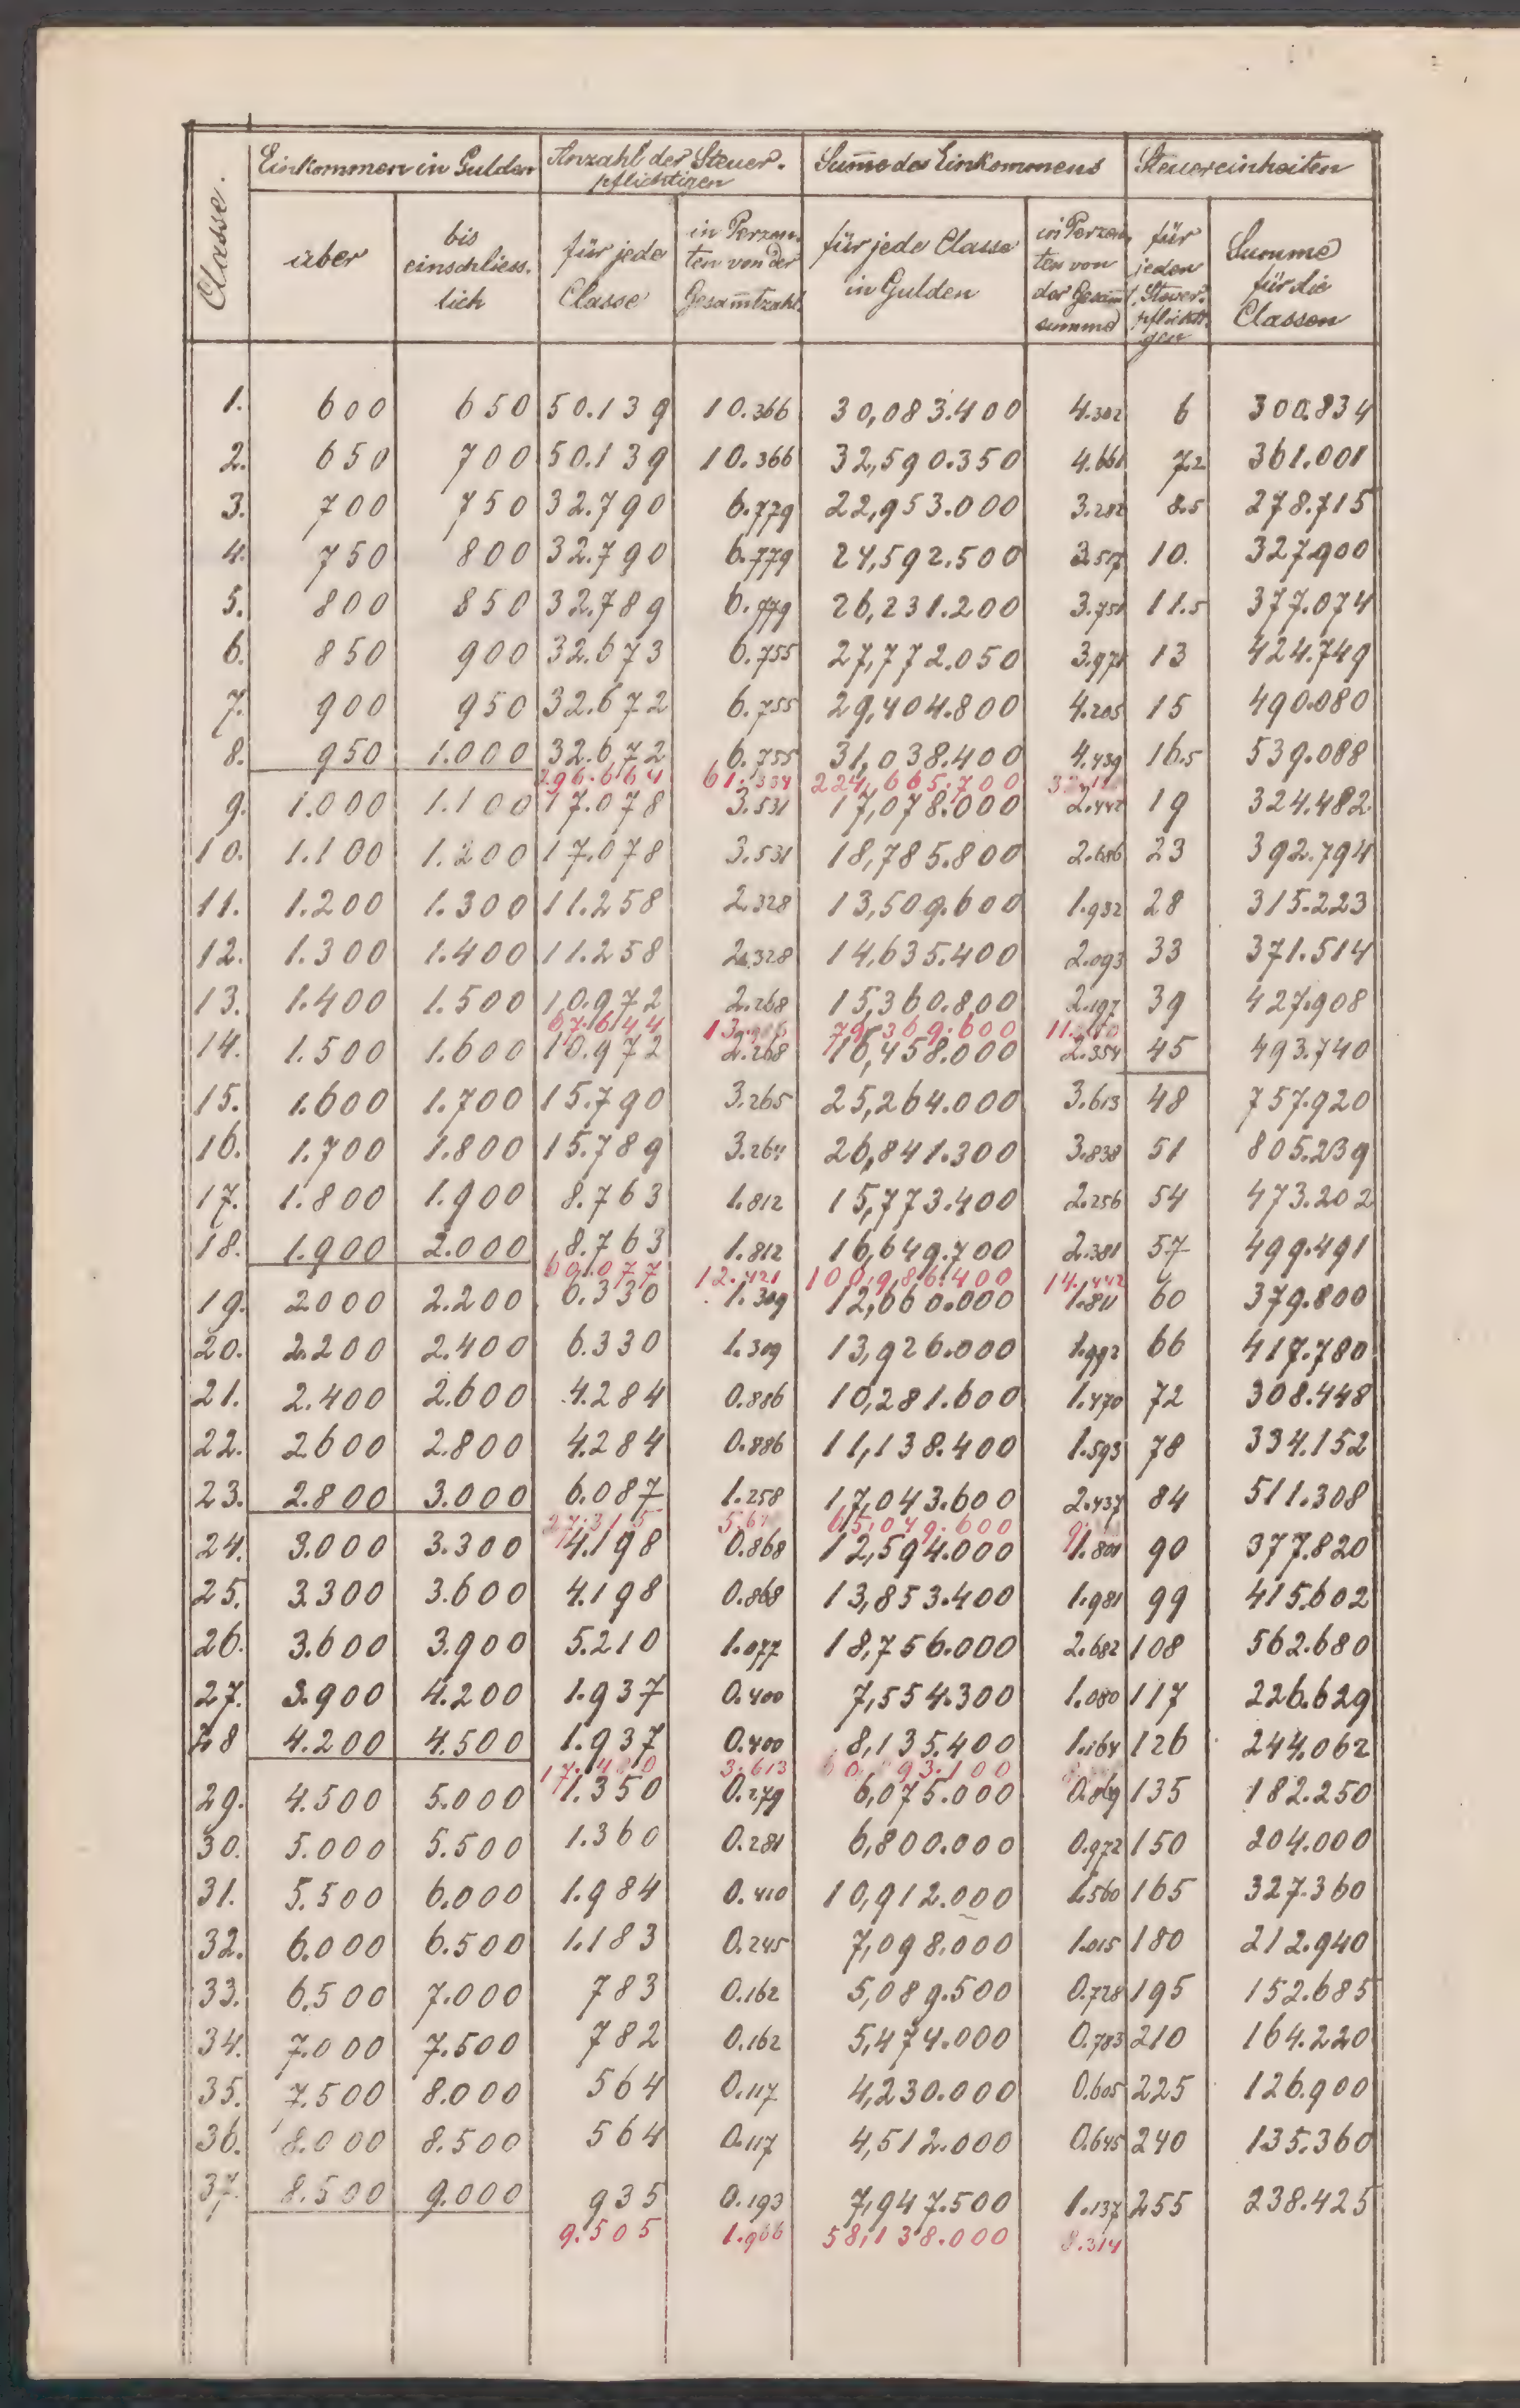 Classe. Einkommen in Gulden Anzahl der Steuer- Summe des Einkommens Steuereinheiten
pflichtigen
über bis einschliess. lich für jede Classe in Perzen. ten von der Gesam̄tzahl. für jede Classe in Gulden in Perzen, ten von der Gesam̄t summe für jeden Steuer. pflichti gen Summe für die Classen
1. 600 650 50.139 10.366 30,083.400 4.302 6 300.834
2. 650 700 50.139 10.366 32,590.350 4.661 7.2 361.001
3. 700 750 32.790 6.779 22,953.000 3.282 8.5 278.715
4. 750 800 32.790 6.779 24,592.500 3.517 10. 327.900
5. 800 850 32.789 6.779 26,231.200 3.751 11.5 377.074
6. 850 900 32.673 6.755 27,772.050 3.971 13 424.749
7. 900 950 32.672 6.755 29,404.800 4.205 15 490.080
8. 950 1.000 32.672 6.755 31,038.400 4.439 16.5 539.088
296.664 61.334 224,665.700
9. 1.000 1.100 17.078 3.531 17,078.000 2.442 19 324.482
10. 1.100 1.200 17.078 3.531 18,785.800 2.686 23 392.794
11. 1.200 1.300 11.258 2.328 13,509.600 1.932 28 315.223
12. 1.300 1.400 11.258 2.328 14,635.400 2.093 33 371.514
13. 1.400 1.500 10.972 2.268 15,360.800 2.197 39 427.908
67.644 79,369.600
14. 1.500 1.600 10.972 2.268 16,458.000 2.354 45 493.740
15. 1.600 1.700 15.790 3.265 25,264.000 3.613 48 757.920
16. 1.700 1.800 15.789 3.264 26,841.300 3.838 51 805.239
17. 1.800 1.900 8.763 1.812 15,773.400 2.256 54 473.202
18. 1.900 2.000 8.763 1.812 16,649.700 2.381 57 499.491
60.077 12.421 100,986.400 14.442
19. 2000 2.200 6.330 1.309 12,660.000 1.811 60 379.800
20. 2.200 2.400 6.330 1.309 13,926.000 1.992 66 417.780
21. 2.400 2.600 4.284 0.886 10,281.600 1.470 72 308.448
22. 2600 2.800 4.284 0.886 11,138.400 1.593 78 334.152
23. 2.800 3.000 6.087 1.258 17,043.600 2.437 84 511.308
27.315 65,049.600
24. 3.000 3.300 4.198 0.868 12,594.000 1.801 90 377.820
25. 3.300 3.600 4.198 0.868 13,853.400 1.981 99 415.602
26. 3.600 3.900 5.210 1.077 18,756.000 2.682 108 562.680
27. 3.900 4.200 1.937 0.400 7,554.300 1.080 117 226.629
28 4.200 4.500 1.937 0.400 8,135.400 1.164 126 244.062
3.613
29. 4.500 5.000 1.350 0.279 6,075.000 0.869 135 182.250
30. 5.000 5.500 1.360 0.281 6,800.000 0.972 150 204.000
31. 5.500 6.000 1.984 0.410 10,912.000 1.560 165 327.360
32. 6.000 6.500 1.183 0.245 7,098.000 1.015 180 212.940
33. 6.500 7.000 783 0.162 5,089.500 0.728 195 152.685
34. 7.000 7.500 782 0.162 5,474.000 0.783 210 164.220
35. 7.500 8.000 564 0.117 4,230.000 0.605 225 126.900
36. 8.000 8.500 564 0.117 4,512.000 0.645 240 135.360
37. 8.500 9.000 935 0.193 7,947.500 1.137 255 238.425
9.505 1.966 58,138.000 8.314